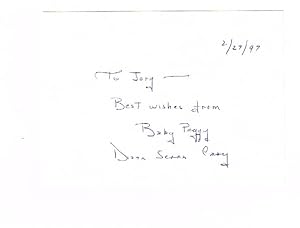 2/27/97
To Jory —
Best wishes from
Baby Peggy
Diana Serra Cary